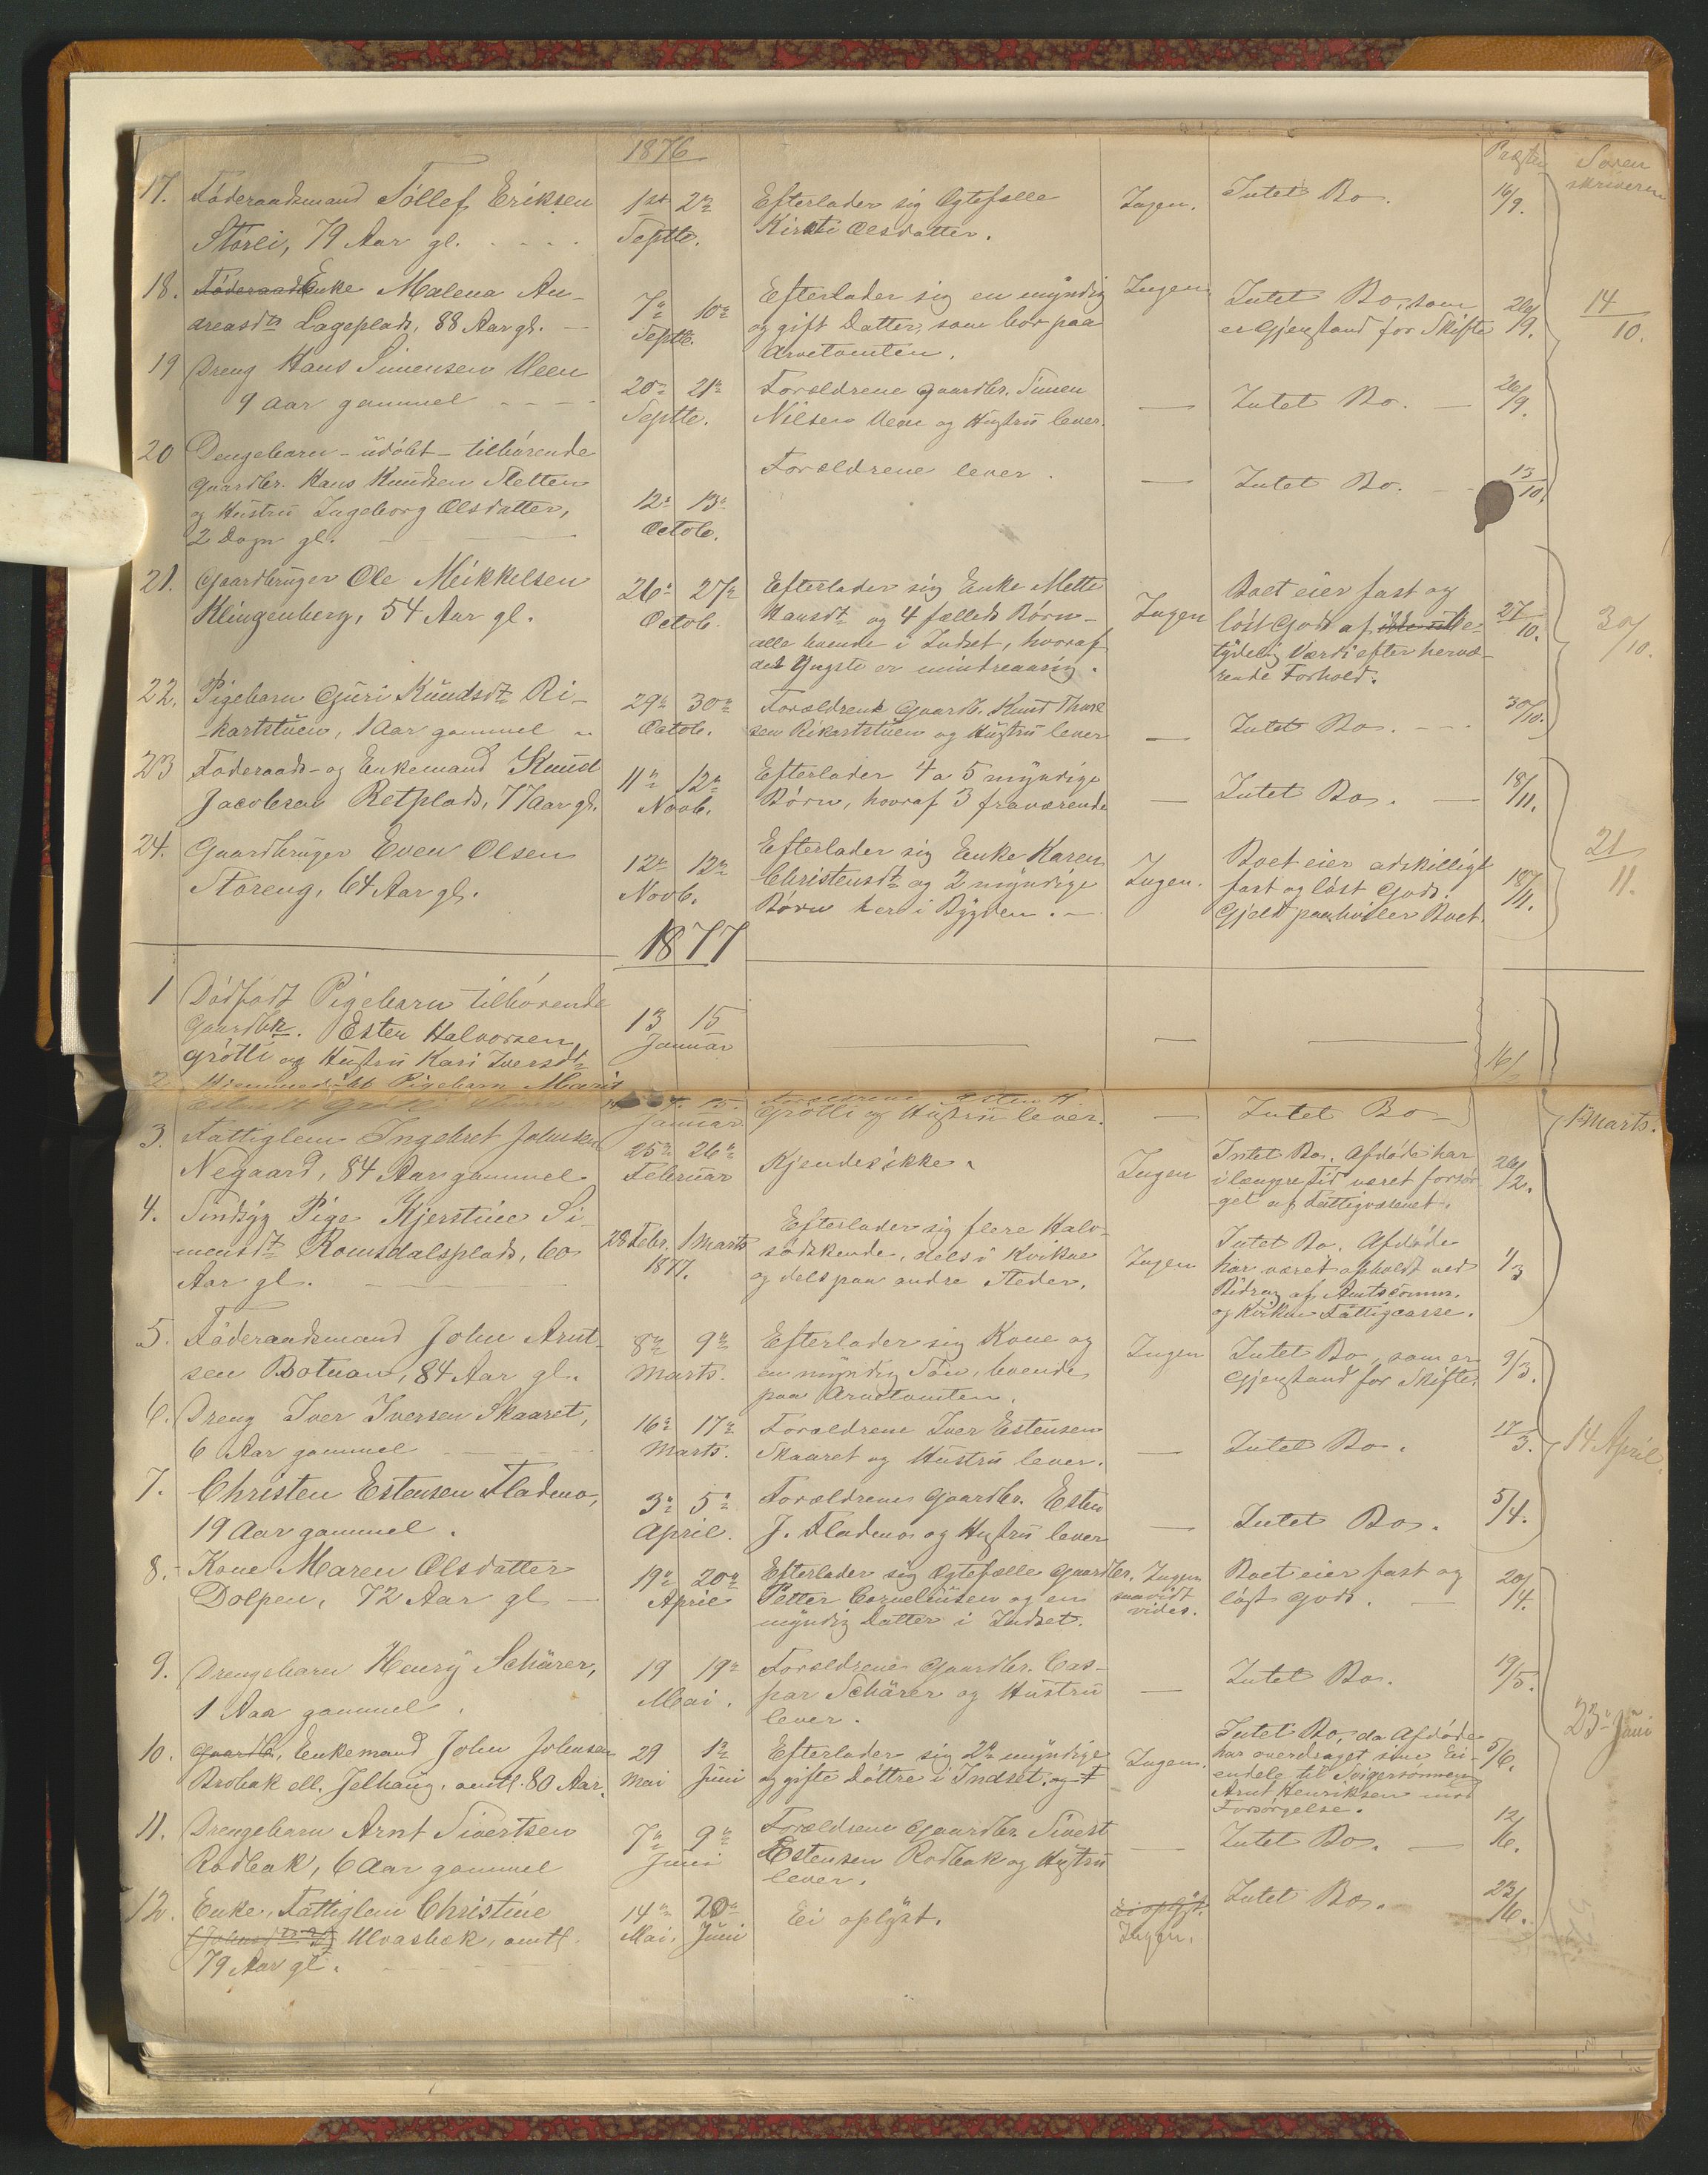 1876
Præsten Soren
skriveren
17. Föderaadsmand Tollef Eriksen
Storli, 79 Aar gl.
1ste 2n
Septbr.
Efterlader sig Ægtefælle
Kirsti Olsdatter.
Ingen.
Intet Bo.
16/9.
18. Enke Malena An-
dreasdtr Lageplads, 88 Aar gl.
7n 10n
Septbr.
Efterlader sig en myndig
og gift Datter, som bor paa
Arvetomten.
Ingen
Intet Bo, som
er Gjenstand for Skifte
14/10.
19 Dreng Hans Simensen Veen
9 Aar gammel
20n 21n
Septbr.
Forældrene Gaardbr. Simen
Nilsen Veen og Hustru lever.
—
Intet Bo.
26/9.
20 Drengebarn - udöbt - tilhörende
Gaardbr. Hans Knudsen Sletten
og Hustru Ingeborg Olsdatter,
2 Dogn gl.
12n 13n
Octob.
Forældrene lever.
—
Intet Bo.
13/10.
21. Gaardbruger Ole Meikkelsen
Klingenberg, 54 Aar gl.
26n 27n
Octob.
Efterlader sig Enke Mette
Hansdtr og 4 fælleds Börn -
alle boende i Indset, hvoraf
det Yngste er mindreaarig.
Ingen
Boet eier fast og
löst Gods af be-
tydelig Værdi efter herva-
rende Forhold.
27/10.
30/10.
22. Pigebarn Guri Knudsdtr Ri-
kartstuen, 1 Aar gammel
29n 30n
Octob.
Forældrene Gaardb. Knud
sen Rikartstuen og Hustru lever
—
Intet Bo.
30/10.
23 Föderaads- og Enkemand Knud
Jacobsen Retplads, 77 Aar gl.
11n 12n
Novb.
Efterlader 4 a 5 myndige
Börn, hvoraf 3 fraværende
—
Intet Bo.
18/11.
24. Gaardbruger Even Olsen
Storeng, 64 Aar gl.
12n 12n
Novb.
Efterlader sig Enke Karen
Christensdtr og 2 myndige
Börn her i Bygden.
Ingen.
Boet eier adskilligt
fast og löst Gods.
Gjeld paahviler Boet.
18/11.
21/11.
1877
1 Dödfödt Pigebarn tilhörende
Gaardbr. Esten Halvorsen
Grötli og Hustru Kari Iversdtr
13 15
Januar
—
—
—
16/
2. Hjemmedöbt Pigebarn Marit
15.
Januar
Grötli og Hustru lever.
—
Intet Bo
1 Marts.
3. Fattiglem Ingebret Johnsen
Negaard, 84 Aar gammel
25n 26n
Februar
Kjendes ikke.
Ingen
Intet Bo. Afdöde har
i længre Tid været forsör-
get af Fattigvæsenet.
26/2.
4. Sindsyg Pige Kjerstine Si-
mensdtr Romsdalsplads, 60
Aar gl.
28 Febr. 1 Marts
1877.
Efterlader sig flere Halv-
södskende, dels i Kvikne
og dels paa andre Steder.
Ingen
Intet Bo. Afdöde
har været opholdt ved
Bidrag af Amtscomm.
og Kvikne Fattigcasse.
1/3
5. Föderaadsmand John Arnt-
sen Botnan, 84 Aar gl.
8n 9n
Marts.
Efterlader sig Kone og
en myndig Sön, boende
paa Arvetomten.
Ingen
Intet Bo, som er
Gjenstand for Skifte.
9/3.
6. Dreng Iver Iversen Skaaret,
6 Aar gammel
16n 17n
Marts.
Forældrene Iver Estensen
Skaaret og Hustru lever.
—
Intet Bo.
17/3.
14 April.
7. Christen Estensen Fladmo,
19 Aar gammel.
3n 5n
April.
Forældrene Gaardbr. Esten
J. Fladmo og Hustru lever
—
Intet Bo.
5/4.
8. Kone Maren Olsdatter
Dolpen, 72 Aar gl
19n 20n
April
Efterlader sig Ægtefælle Gaardbr.
Petter Corneliusen og en
myndig Datter i Indset.
Ingen
saavidt
vides.
Boet eier fast og
löst Gods.
20/4.
9. Drengebarn Henry Schärer,
1 Aar gammel.
19 19n
Mai.
Forældrene Gaardbr. Cas-
par Schärer og Hustru
lever.
—
Intet Bo.
19/5.
23n Juni
10. Gaardb., Enkemand John Johnsen
Brobak ell. Jelhaug, omtl. 80 Aar.
29 1n
Mai Juni
Efterlader sig 2 myndige
og gifte Döttre i Indset.
Ingen.
Intet Bo, da Afdöde
har overdraget sine Ei-
endele til Svigersönnen
Arnt Henriksen mod
Forsörgelse.
5/6.
11. Drengebarn Arnt Sivertsen
Rodbak, 6 Aar gammel
7n 9n
Juni
Forældrene Gaardbr. Sivert
Estensen Rodbak og Hustru
lever.
—
Intet Bo.
12/6.
12. Enke, Fattiglem Christine
Ulvasbæk, omtl.
79 Aar gl.
14n 20n
Mai, Juni
Ei oplyst.
Ei oplyst.
Ingen.
Intet Bo.
23/6.